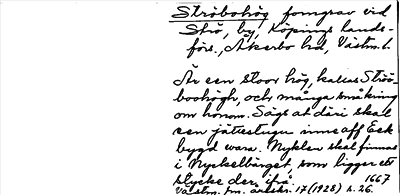 Ströbohög forngrav vid
Strö, by, Köpings lands-
förs., Åkerbo hd, Västm. l.
Är een stoor hög, kallas Ströö-
boohögh, och många småkring
om honom. Sägs at däri skal
een jättestugu inne aff Eek
bygd wara. Nyklen skal finnas
i Nyckelbärget som ligger ett
stycke der ifrå. 1667
Västm. fm. årsskr. 17 (1928) s. 26.